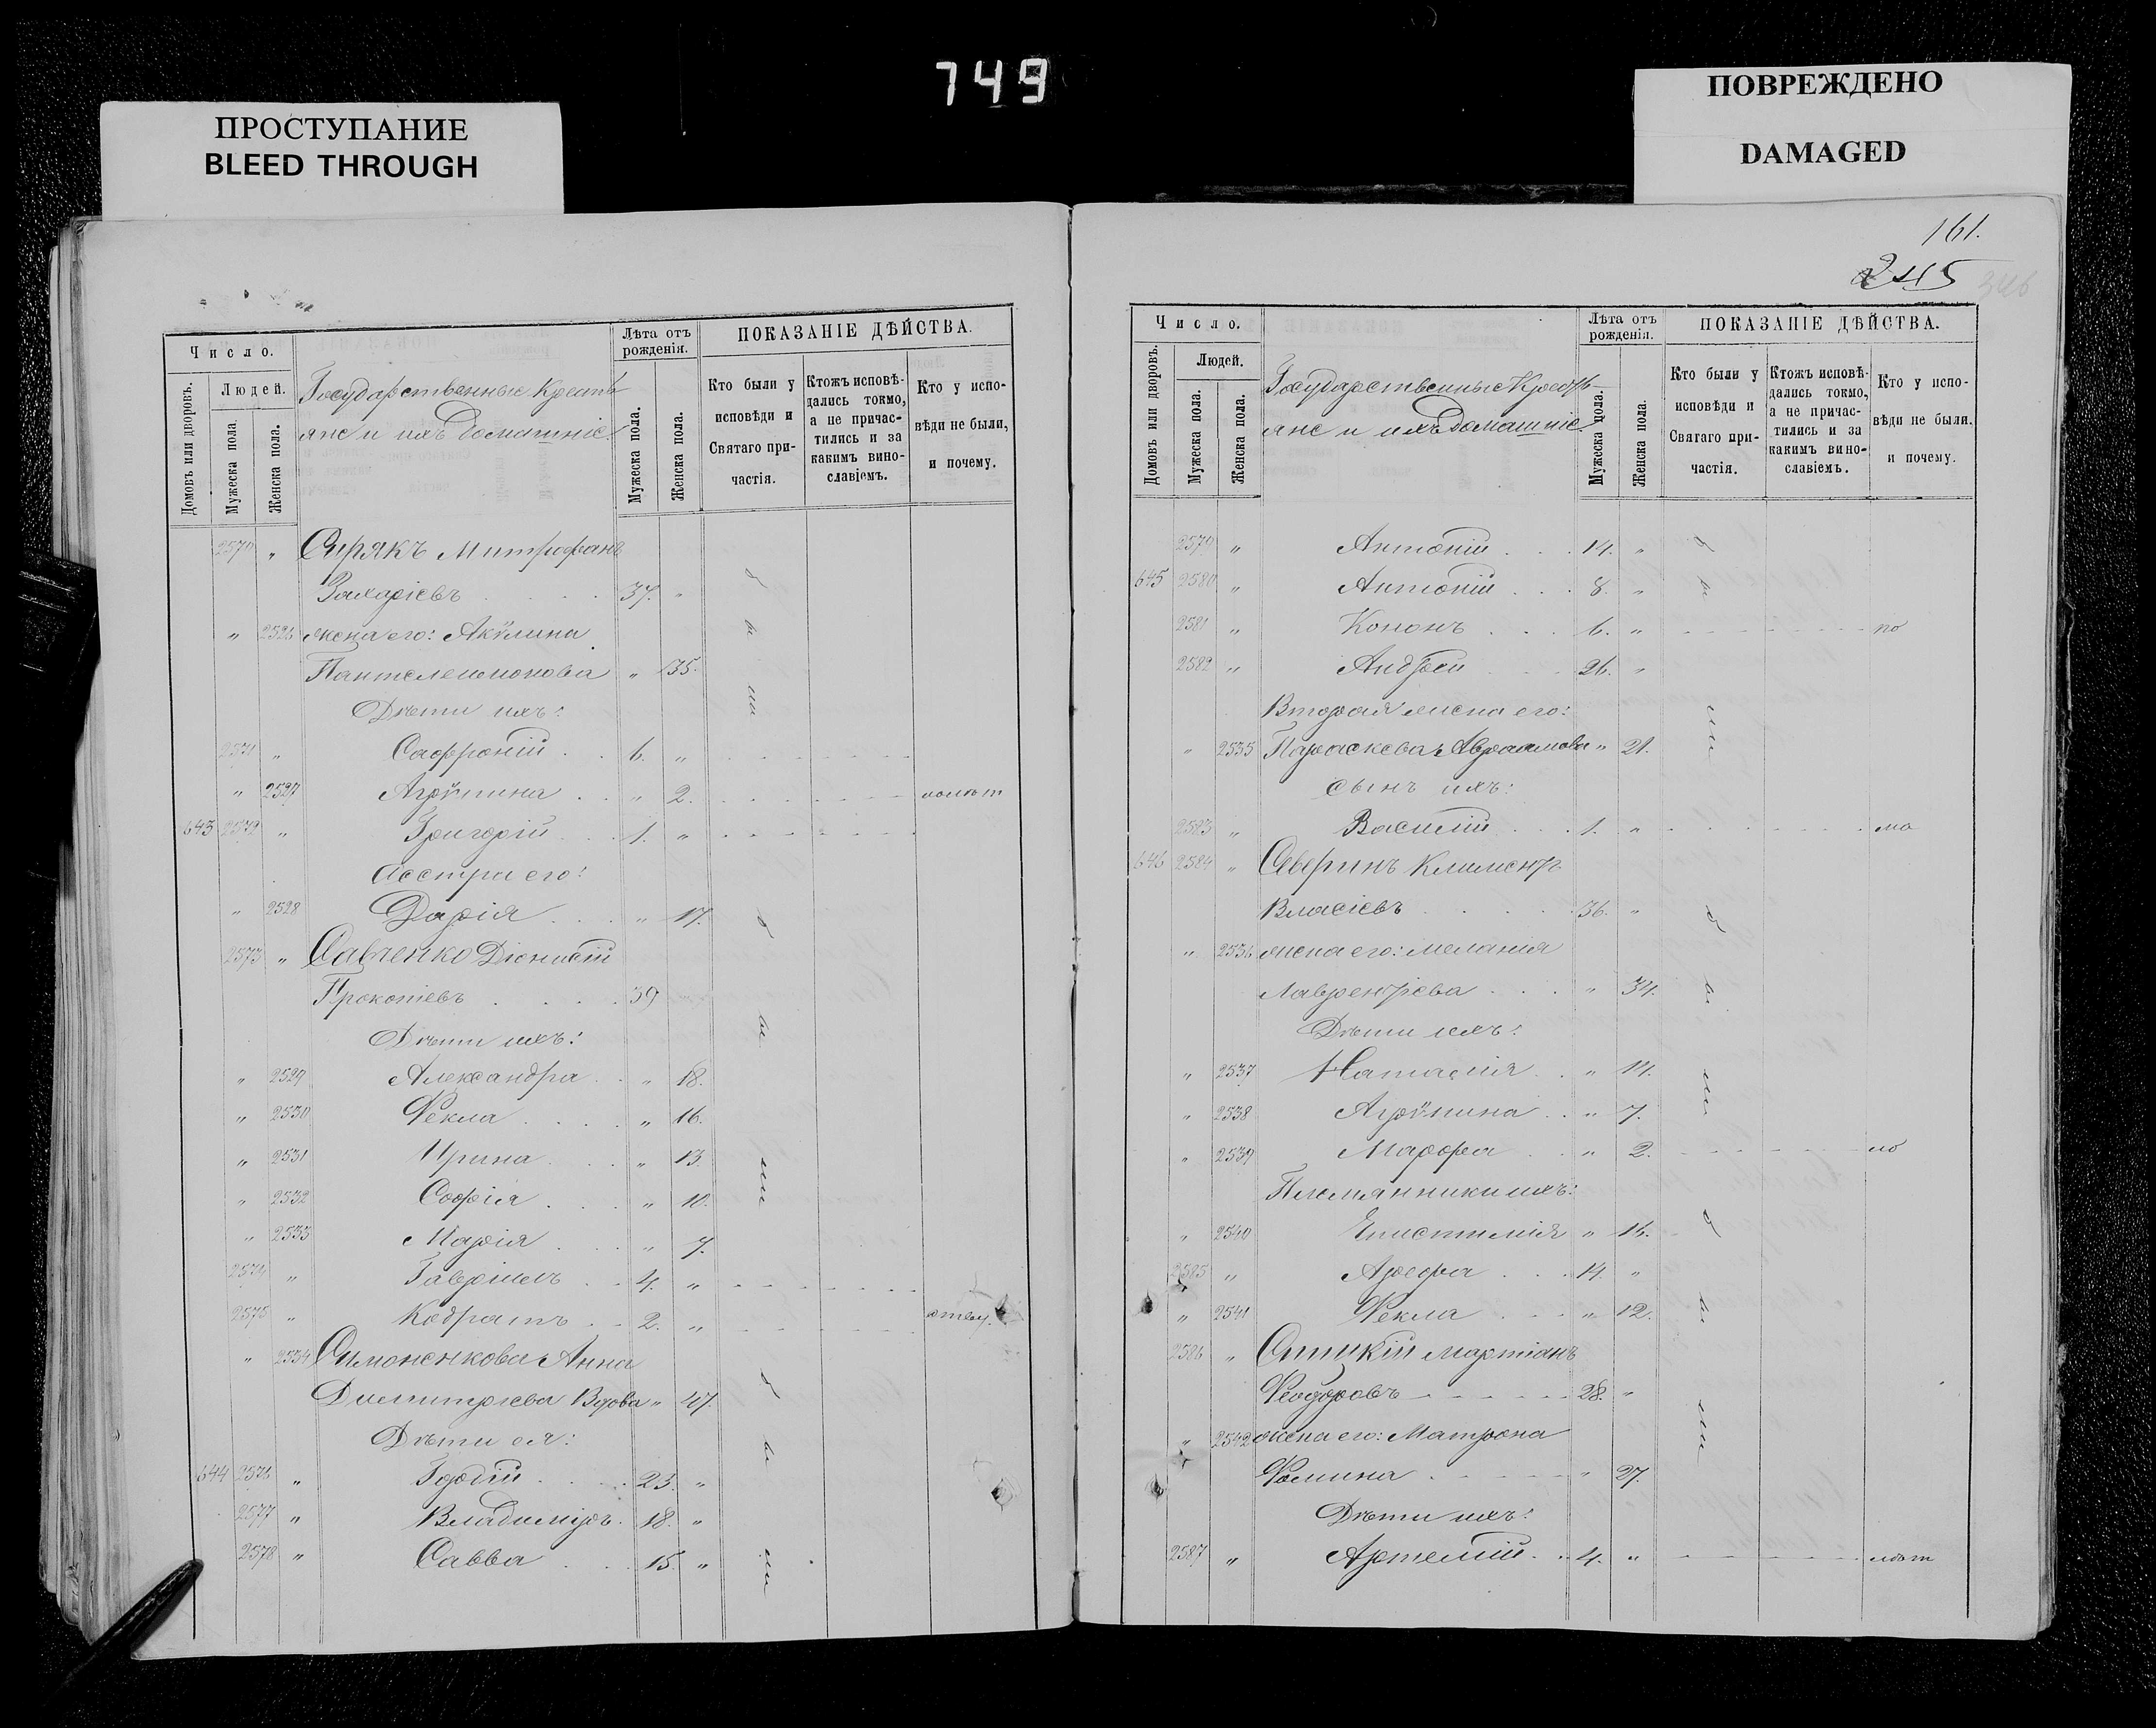 749
ПРОСТУПАНИЕ
BLEED THROUGH
ПОВРЕЖДЕНО
DAMAGED
Число.
Домовъ или дворовъ.
Людей.
Мужеска пола.
Женска пола.
Государственные Кресть
яне и ихъ домашніе.
Лѣта отъ рожденія.
Мужеска пола.
Женска пола.
ПОКАЗАНІЕ ДѢЙСТВА.
Кто были у исповѣди и Святаго причастія.
Ктожъ исповѣдались токмо, а не причастились и за какимъ винословіемъ.
Кто у исповѣди не были, и почему.
2570 " Сирякъ Митрофанъ
Захаріевъ 37. "
" 2526 жена его: Акѵлина
Пантелеимонова " 35.
Дѣти ихъ:
2571 " Саффроній 6. "
" 2527 Агрѵпина " 2.
643 2572 " Григорій 1. "
Сестра его:
" 2528 Дарія " 17.
2573 " Савченко Діонисій
Прокопіевъ 39
Дѣти ихъ:
" 2529 Александра " 18.
" 2530 Ѳекла " 16.
" 2531 Ирина " 13.
" 2532 Софія " 10.
" 2533 Марія " 7.
2574 " Гавріилъ 4. "
2575 " Кодратъ 2. "
" 2534 Симоненкова Анна
Димитріева Вдова " 47.
Дѣти ея:
644 2576 " 23. "
2577 " Владиміръ 18. "
2578 " Савва 15. "
161.
245
346
Число.
Домовъ или дворовъ.
Людей.
Мужеска пола.
Женска пола.
Государственные Кресть
яне и ихъ домашніе
Лѣта отъ рожденія.
Мужеска пола.
Женска пола.
ПОКАЗАНІЕ ДѢЙСТВА.
Кто были у исповѣди и Святаго причастія.
Ктожъ исповѣдались токмо, а не причастились и за какимъ винословіемъ.
Кто у исповѣди не были, и почему.
2579 " Антоній 14. "
645 2580 " Антоній 8. "
2581 " Кононъ 6. " по
2582 " Андрей 26. "
Вторая жена его:
" 2535 Параскева Авраамова " 21.
сынъ ихъ:
2583 " Василій 1. " ма
646 2584 " Северинъ Климентъ
Власіевъ 36. "
" 2536 жена его: Меланія
Лаврентіева " 34.
Дѣти ихъ:
" 2537 Наталія " 11.
" 2538 Агрѵпина " 7.
" 2539 Марфа " 2. ло
Племянники ихъ:
" 2540 Епистимія " 16.
2585 " Арефа 14. "
" 2541 Ѳекла " 12.
2586 " Мартіанъ
Ѳеодоровъ 28. "
" 2542 жена его: Матрона
Ѳомина " 27.
Дѣти ихъ:
2587 " Артемій 4. "